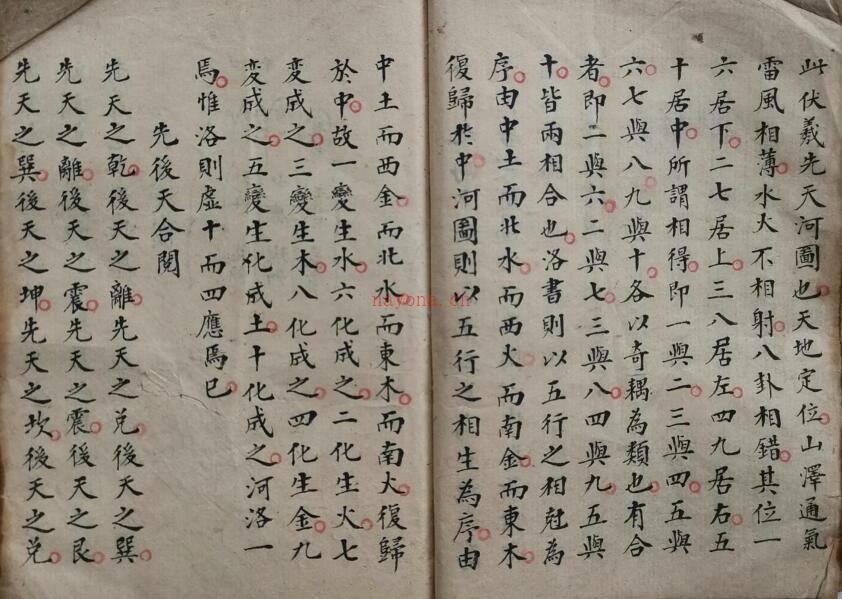 此伏羲先天河圖也天地定位山澤通氣
雷風相薄水火不相射八卦相錯其位一
六居下二七居上三八居左四九居右五
十居中所謂相得即一與二三與四五與
六七與八九與十各以奇耦為類也有合
者即二與六二與七三與八四與九五與
十皆兩相合也洛書則以五行之相尅為
序由中土而北水而西火而南金而東木
復歸於中河圖則以五行之相生為序由
中土而西金而北水而東木而南火復歸
於中故一變生水六化成之二化生火七
变成之三變生木八化成之四化生金九
变成之五變生化成土十化成之河洛一
焉惟洛則虛十而四應焉已
先後天合閱
先天之乾後天之離先天之兑後天之巽
先天之離後天之震先天之震後天之艮
先天之巽後天之坤先天之坎後天之兑
nayona.cn